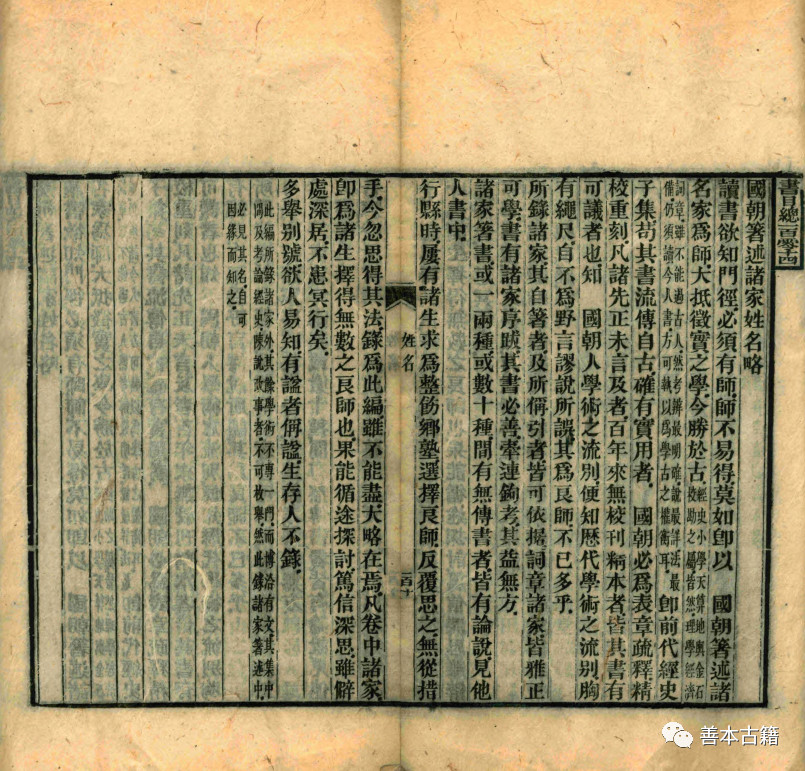 書目總百零四
國朝箸述諸家姓名略
讀書欲知門徑必須有師師不易得莫如卽以　國朝箸述諸
名家爲師大抵徵實之學今勝於古
經史小學天算地輿金石
校勘之屬皆然理學經濟
詞章雖不能過古人然考辨最明確說最詳法最
備仍須讀今人書方可執以爲學古之權衡耳
卽前代經史
子集苟其書流傳自古確有實用者　國朝必爲表章疏釋精
校重刻凡諸先正未言及者百年來無校刊精本者皆其書有
可議者也知　國朝人學術之流別便知歷代學術之流別胸
有繩尺自不爲野言謬說所誤其爲良師不已多乎
所錄諸家其自箸者及所偁引者皆可依據詞章諸家皆雅正
可學書有諸家序跋其書必善牽連鉤考其益無方
諸家箸書或一兩種或數十種間有無傳書者皆有論說見他
人書中
行縣時屢有諸生求爲整飭鄉塾選擇良師反覆思之無從措
姓名
百十
手今忽思得其法錄爲此編雖不能盡大略在焉凡卷中諸家
卽爲諸生擇得無數之良師也果能循途探討篤信深思雖僻
處深居不患冥行矣
多舉別號欲人易知有謚者偁謚生存人不錄
此編所錄諸家外其餘學術不專一門而博洽有文其集中
閒及考論經史陳說政事者不可枚舉然此錄諸家著述中
必見其名自可
因緣而知之
善本古籍